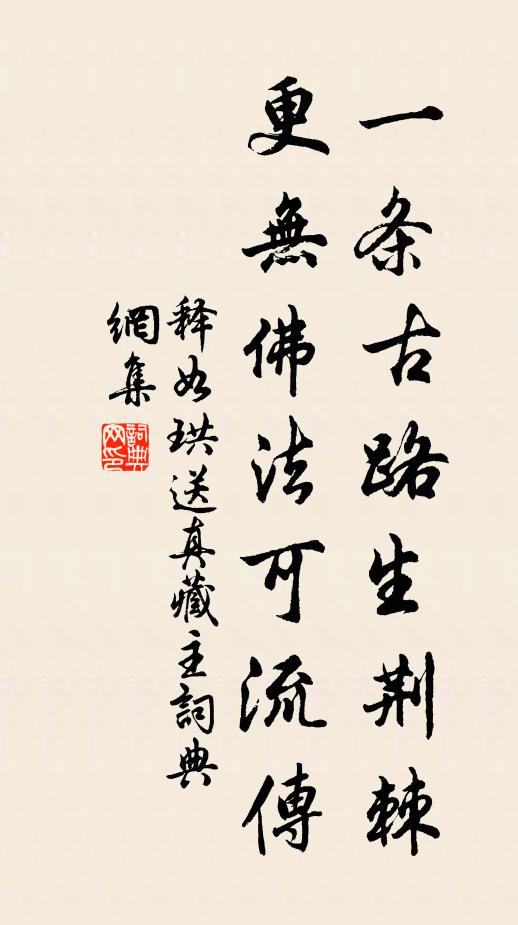 一条古路生荆棘
更無佛法可流傳
释如珙送真藏主詞典
網集
詞典网印